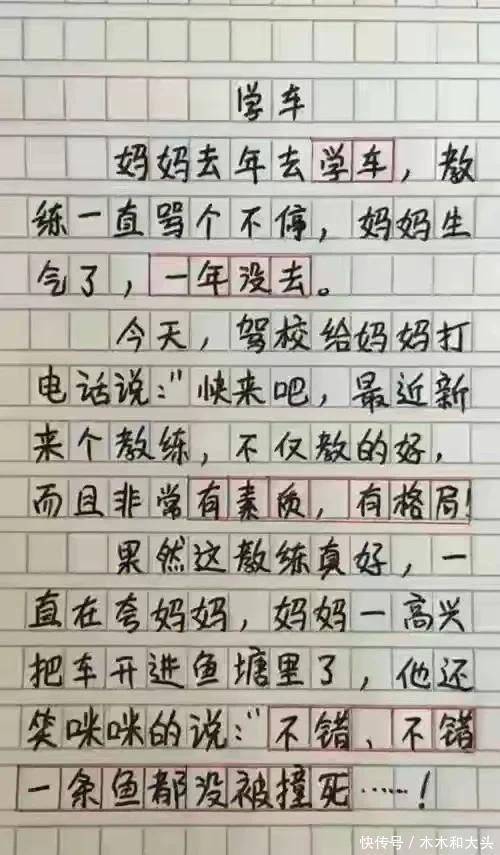 学车
妈妈去年去学车，教
练一直骂个不停，妈妈生
气了，一年没去。
今天，驾校给妈妈打
电话说："快来吧，最近新
来个教练，不仅教的好，
而且非常有素质，有格局！
果然这教练真好，一
直在夸妈妈，妈妈一高兴
把车开进鱼塘里了，他还
笑咪咪的说："不错、不错
一条鱼都没被撞死……！
快传号／木木和大头